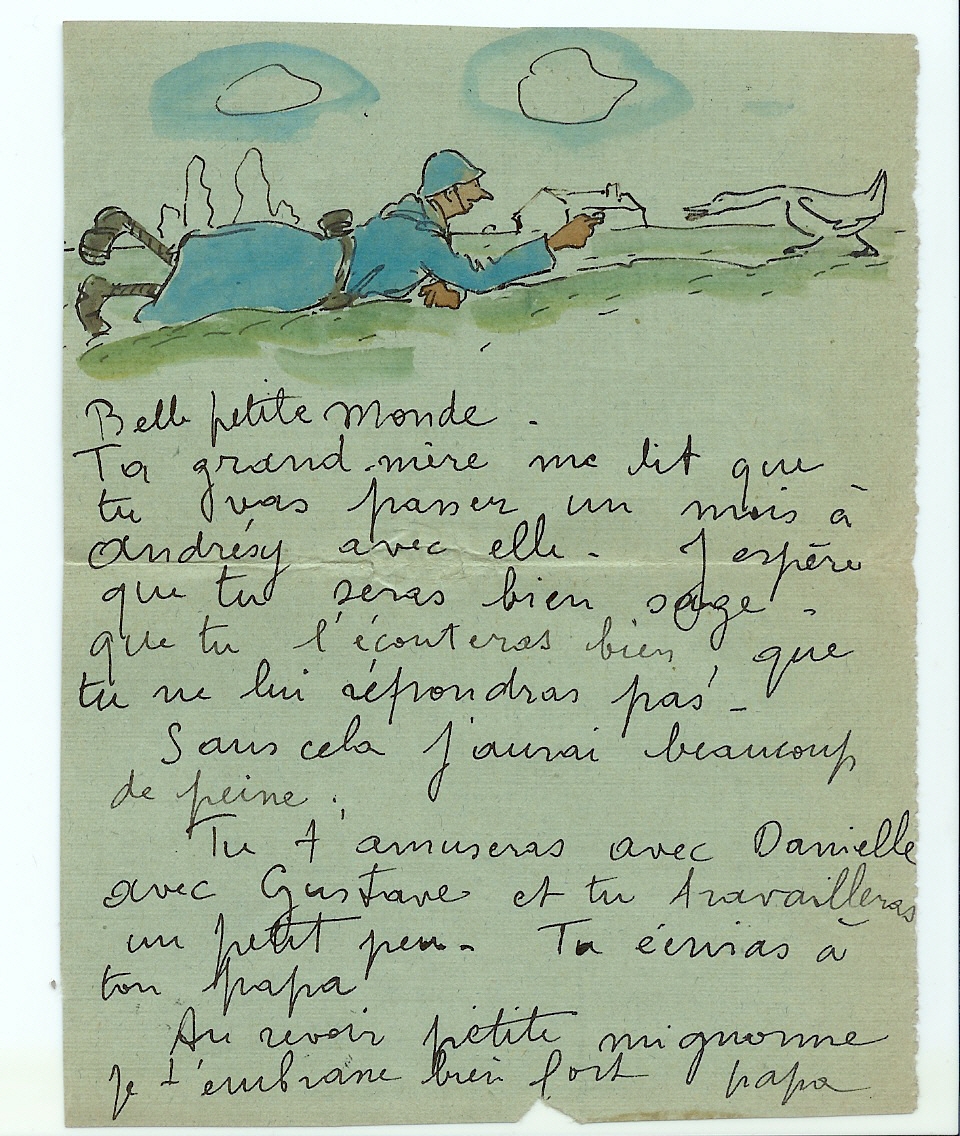 Belle petite Monde.
Ta grand-mère me dit que
tu vas passer un mois à
Andrésy avec elle. J'espère
que tu seras bien sage.
que tu l'écouteras bien, que
tu ne lui répondras pas -
Sans cela j'aurai beaucoup
de peine.
Tu t'amuseras avec Danielle
avec Gustave et tu travailleras
un petit peu. Tu écriras à
ton papa
Au revoir petite mignonne
je t'embrasse bien fort papa